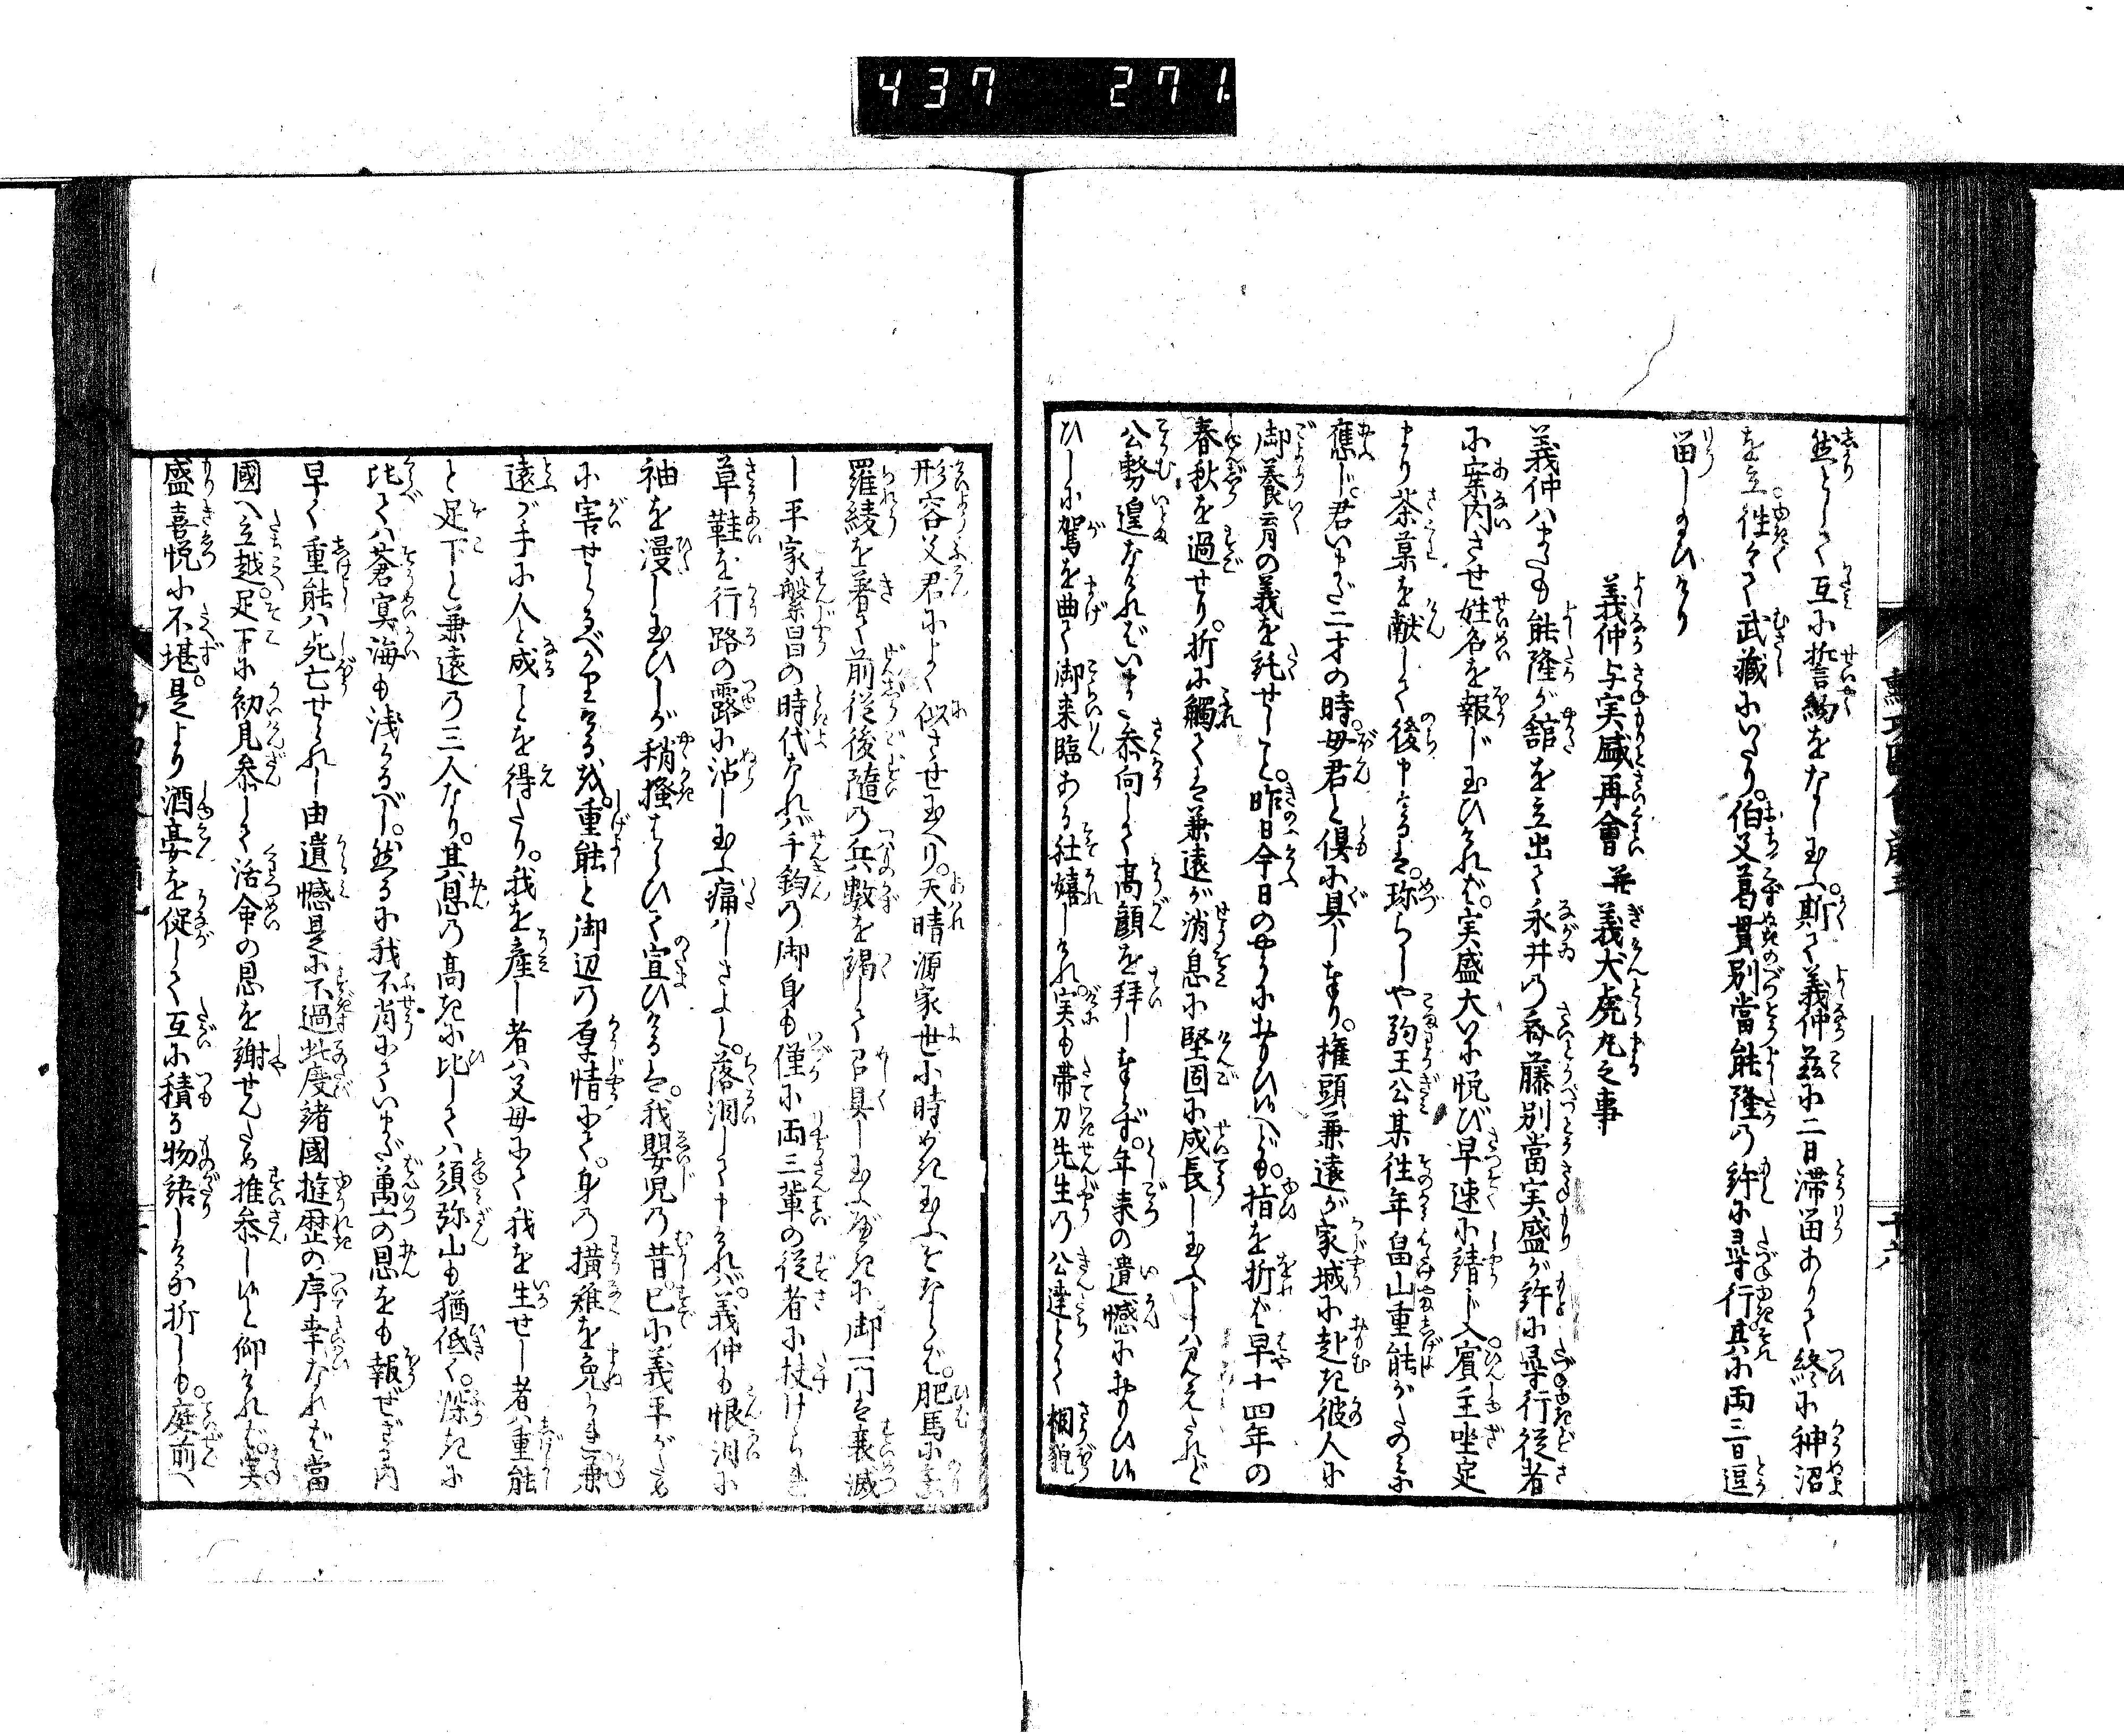 437 271
然として互に誓約をなし玉ふ。斯て義仲茲に二日滞留ありて終に神沼
を立。往々て武蔵にいたり。伯父葛貫別當能隆の許に尋行。其に両三日逗
留し玉ひけり
義仲与実盛再會並義犬虎丸之事
義仲ハまたも能隆が舘を立出て永井の斎藤別當実盛が許に尋行従者
に案内させ姓名を報じ玉ひけれバ。実盛大いに悦び早速に請じ入。賓主坐定
まり茶菓を献して後申けるハ。珎らしや駒王公某往年畠山重能がたのみに
應じ。君いまだ二才の時。母君と倶に具しまゐり。権頭兼遠が家城に赴き彼人に
御養育の義を託せしこと。昨日今日のやうにおもひ候へども。指を折バ早十四年の
春秋を過せり。折に觸てハ兼遠が消息に堅固に成長し玉へしハ聞えたれど
公勢遑なけれバいまた参向して高顔を拝しまゐらず。年来の遺憾におもひ候
ひしに駕を曲て御来臨ある社嬉しけれ。実も帯刀先生の公達とて相貌
形容父君によく似させ玉へり。天晴源家世に時めき玉ふとならバ。肥馬に乗
羅綾を着て前従後隨の兵数を竭して召具し玉ふべきに御一門ハ衰滅
し平家繁昌の時代なれバ千鈞の御身も僅に両三輩の従者に扶けられ
草鞋を行路の露に沾し玉ふ痛ハしさよと。落涙して申けれバ。義仲も恨涙に
袖を漫し玉ひしが稍掻はらひて宣ひけるハ。我嬰児の昔。已に義平がため
に害せらるべかりけるを。重能と御辺の厚情にて。身の横難を免かれ兼
遠が手に人と成ことを得たり。我を産し者ハ父母にて我を生せし者ハ重能
と足下と兼遠の三人なり。其恩の高きに比してハ須弥山も猶低く。深きに
比てハ蒼冥海も浅かるべし。然るに我不肖にていまだ萬一の恩をも報ぜざる内
早く重能ハ死亡せられし由遺憾是に不過此度諸國遊歴の序幸なれバ當
國へ立越。足下に初見参して活命の恩を謝せんため推参し候と仰けれバ。実
盛喜悦に不堪。是より酒宴を促して互に積る物語しける折しも。庭前へ